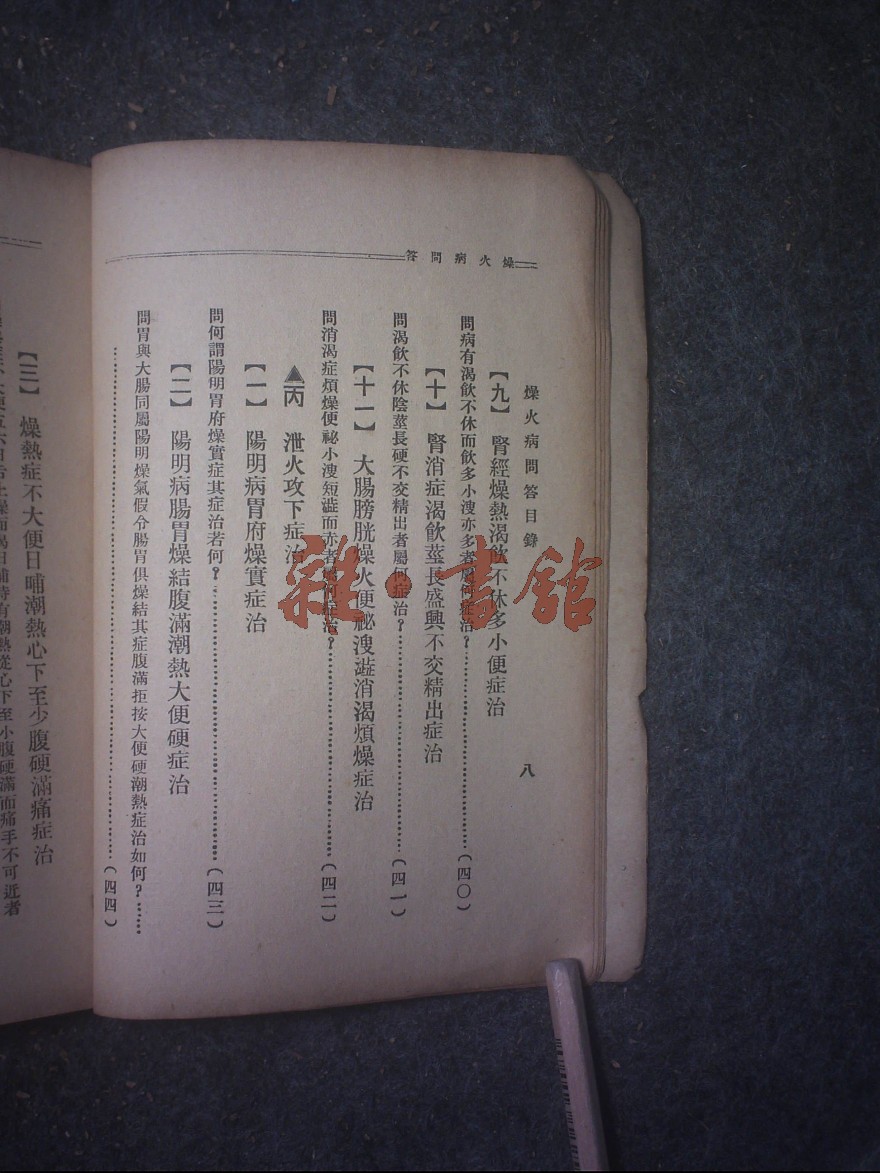 燥火病問答
燥火病問答目錄 八
【九】 腎經燥熱渴飲不休多小便症治
問病有渴飲不休而飲多小溲亦多者屬何症治？……（四〇）
【十】 腎消症渴飲莖長盛興不交精出症治
問渴飲不休陰莖長硬不交精出者屬何症治？……（四一）
【十一】 大腸膀胱燥火便祕溲澁消渴煩燥症治
問消渴症煩燥便祕小溲短澁而赤者屬何症治？……（四二）
▲丙 泄火攻下症治
【一】 陽明病胃府燥實症治
問何謂陽明胃府燥實症其症治若何？……（四三）
【二】 陽明病腸胃燥結腹滿潮熱大便硬症治
問胃與大腸同屬陽明燥氣假令腸胃俱燥結其症腹滿拒按大便硬潮熱症治如何？……
……（四四）
【三】 燥熱症不大便日晡潮熱心下至少腹硬滿痛症治
日晡時有潮熱從心下至小腹硬滿而痛手不可近者
雜·書館